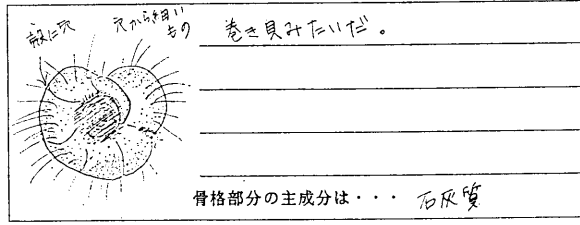 殻に穴
穴から細い
もの
巻き貝みたいだ。
骨格部分の主成分は・・・ 石灰質